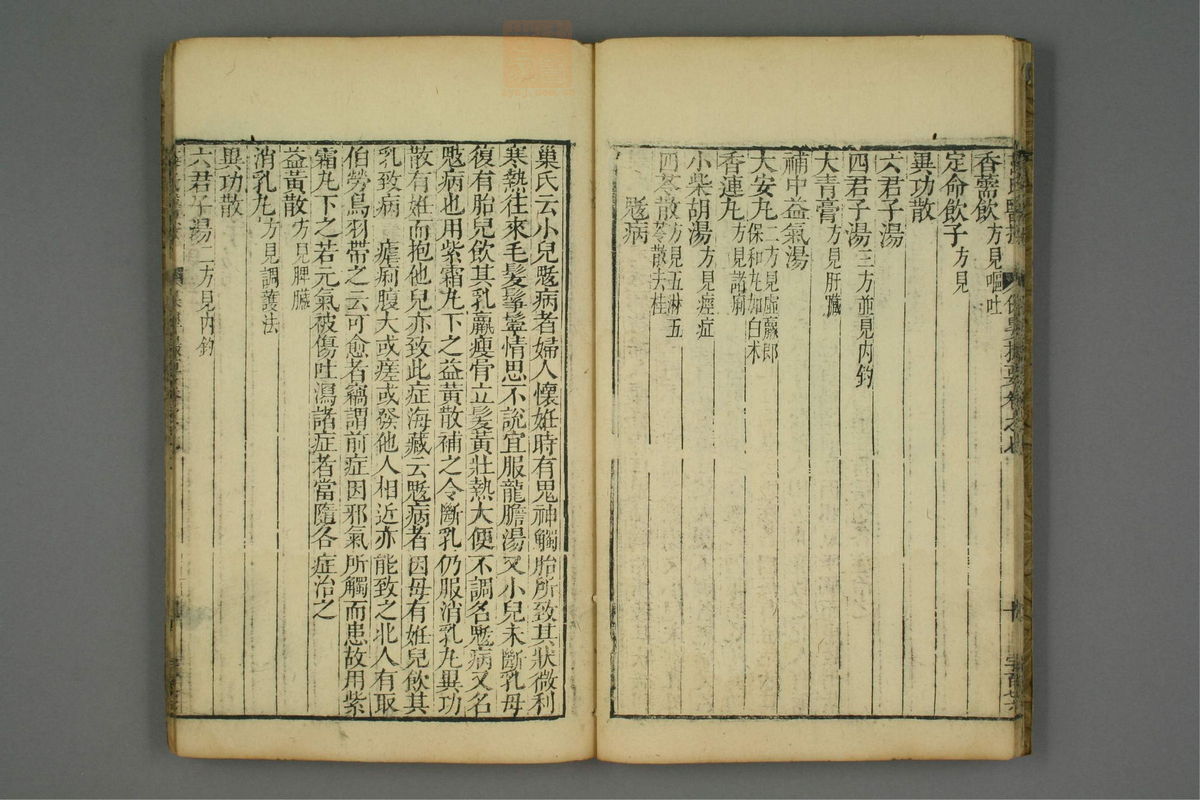 香需飲方見嘔吐
定命飲子方見
異功散
六君子湯
四君子湯三方並見內釣
大青膏方見肝臟
補中益氣湯
大安丸二方見虛羸即保和丸加白朮
香連丸方見諸痢
小柴胡湯方見痙症
四苓散方見五淋五苓散去桂
鬾病
巢氏云小兒鬾病者婦人懷姙時有鬼神觸胎所致其狀微利
寒熱往來毛髮鬇鬡情思不說宜服龍膽湯又小兒未斷乳母
復有胎兒飲其乳羸瘦骨立髮黃壯熱大便不調名鬾病又名
鬾病也用紫霜丸下之益黃散補之令斷乳仍服消乳丸異功
散有姙而抱他兒亦致此症海藏云鬾病者因母有姙兒飲其
乳致病瘧痢腹大或瘥或發他人相近亦能致之北人有取
伯勞鳥羽帶之云可愈者竊謂前症因邪氣所觸而患故用紫
霜丸下之若元氣被傷吐瀉諸症者當隨各症治之
益黃散方見脾臟
消乳丸方見調護法
異功散
六君子湯二方見內釣